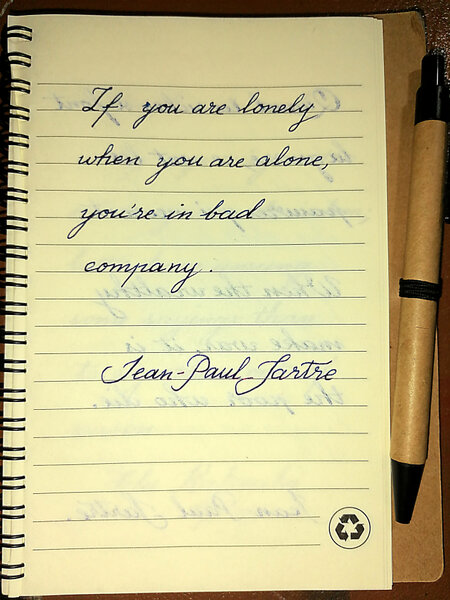 If you are lonely
when you are alone,
you're in bad
company.
Jean-Paul Sartre